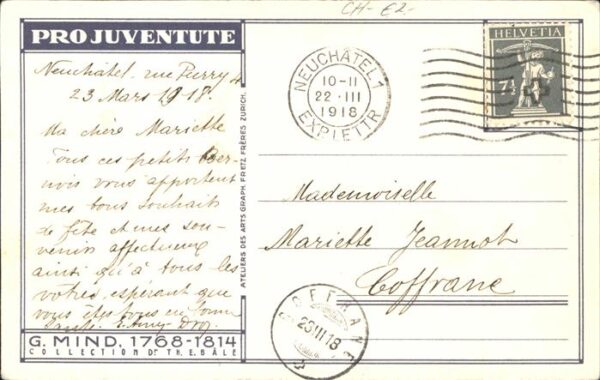 CH- E2-
PRO JUVENTUTE
Neuchâtel, rue Purry 4
23 Mars 1918.
Ma chère Mariette
Tous ces petits Ber-
nois vous apportent
mes bons souhaits
de fête et mes sou-
venirs affectueux
ainsi qu'à tous les
vôtres, espérant que
vous êtes tous en bonne
santé.
G. MIND, 1768-1814
COLLECTION Dr TH. E. BÂLE
ATELIERS DES ARTS GRAPH. FRETZ FRÈRES ZURICH.
NEUCHÂTEL 1
10-11
22·III
1918
EXP. LETTR.
HELVETIA
7½
Mademoiselle
Mariette Jeannot
Coffrane
COFFRANE
23 III 18